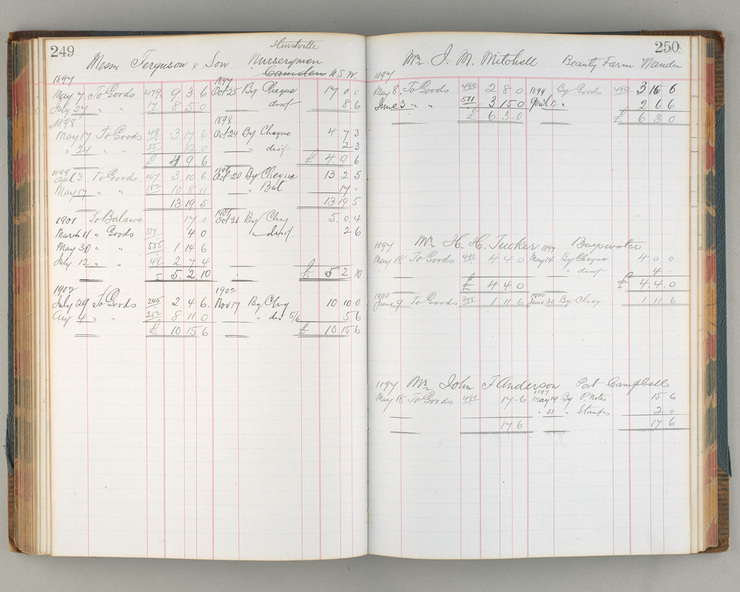 249
Hurstville
Messrs Ferguson & Son Nurserymen
Camden N.S.W.
1897 1897
May 7 To Goods 479 9 3 6 Oct 25 By Cheque 17 0 0
July 27 " " 17 8 5 0 " disct 8 6
1898 1898
May 17 To Goods 48 3 17 6 Oct 24 By Cheque 4 7 3
" 21 " " 12 0 " disct 2 3
£ 4 9 6 £ 4 9 6
1899
April 3 To Goods 3 10 6 Oct 20 By Cheque 13 2 5
May 17 " " 10 8 11 " Bal 17 "
13 19 5 13 19 5
1901 To Balance 17 0 Oct 31 By Chq 5 0 4
March 11 " Goods 4 0 " disct 2 6
May 30 " " 555 1 14 6
July 12 " " 2 7 4
5 2 10 £ 5 2 10
1902 1902
July 29 To Goods 245 2 4 6 Nov 17 By Chq 10 10 0
Aug 4 " " 8 11 0 " dis 5/6 5 6
£ 10 15 6 £ 10 15 6
250
Mr J. M. Mitchell Beauty Farm Wandin
1897
May 8 To Goods 480 2 8 0 1899 By Goods 480 3 16 6
June 3 " " 511 3 15 0 2 6 6
£ 6 3 0 £ 6 3 0
1897 Mr H. H. Tucker 1897 Bayswater
May 18 To Goods 4 4 0 May 14 By Cheque 4 0 0
" disct 4 "
£ 4 4 0 £ 4 4 0
1900 1900
June 9 To Goods 1 11 6 June 30 By Chq 1 11 6
1897 Mr John F Anderson Port Campbell
1897
May 18 To Goods 17 6 May 14 By P Notes 15 6
" 21 " Stamps 2 0
17 6 17 6